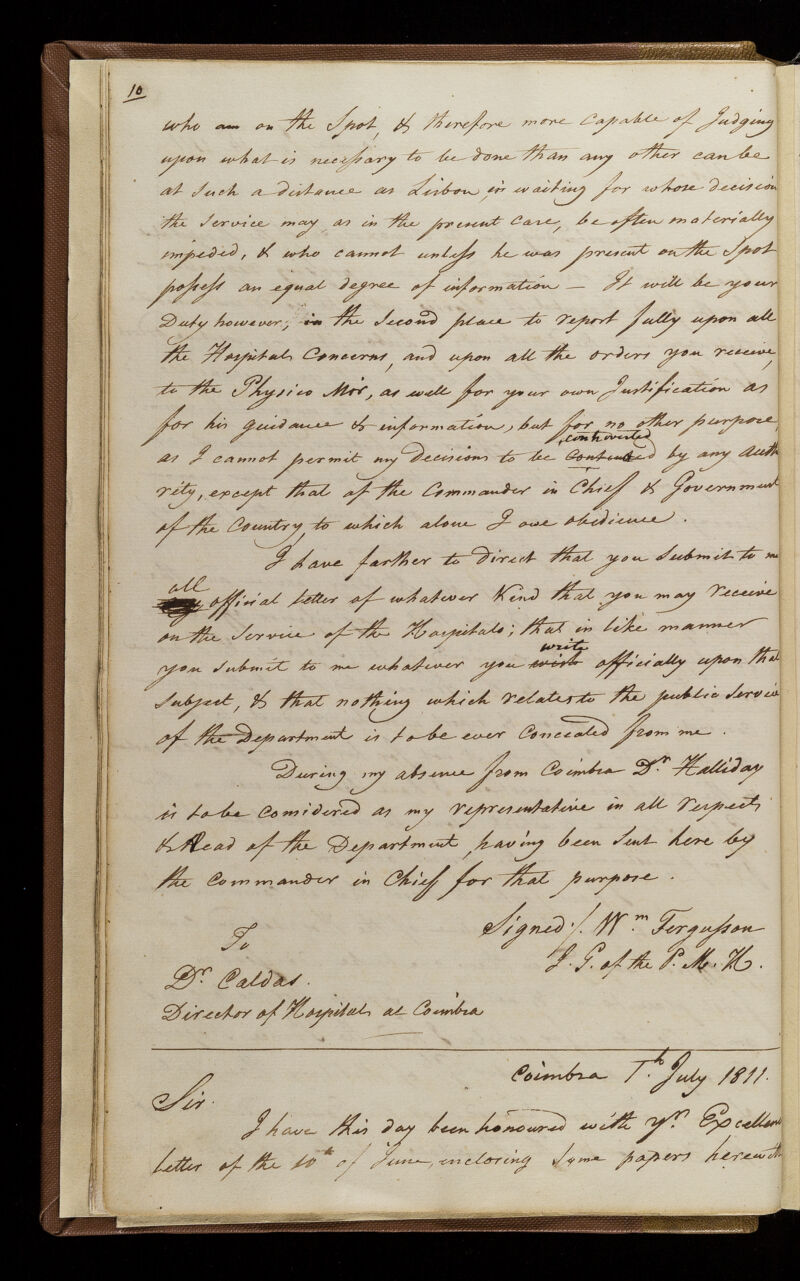 10
who am on the Spot, & therefore more capable of Judging
upon what is necessary to be done than any other can be
at such a distance as Lisbon, in waiting for whose decision
the Service may, as in the present case, be often materially
impeded, & who cannot unless he was present on the Spot
possess an equal degree of information — It will be your
Duty however, in the Second place to report fully upon all
the Hospitals Concerns, and upon all the orders you receive,
to the Physico Mór, as well for your own Justification as
for his guidance & information, but for no other purpose,
controverted
as I cannot permit my Decisions to be by any autho
rity, except that of the Commander in Chief & Government
of the Country, to which alone I owe obedience.
I have farther to direct that you submit to me
all
official letter of whatever Kind that you may receive
on the Service of the Hospitals; that in like manner
write
you submit to me whatever you wish officially upon that
subject, & that nothing which relates to the public Service
of the Department is to be ever Concealed from me.
During my absence from Coimbra Dr. Halliday
is to be considered as my representative in all respects
& Head of the Department, having been sent here by
the Commander in Chief for that purpose.
Signed:/. Wm. Fergusson
I. G. of the P. M. H.
To
Dr. Caldas.
Director of Hospitals at Coimbra
Coimbra 1.h July 1811.
Sir.
I have this day been honoured with yr. Excellen
letter of the 10th of June, inclosing some papers herewith